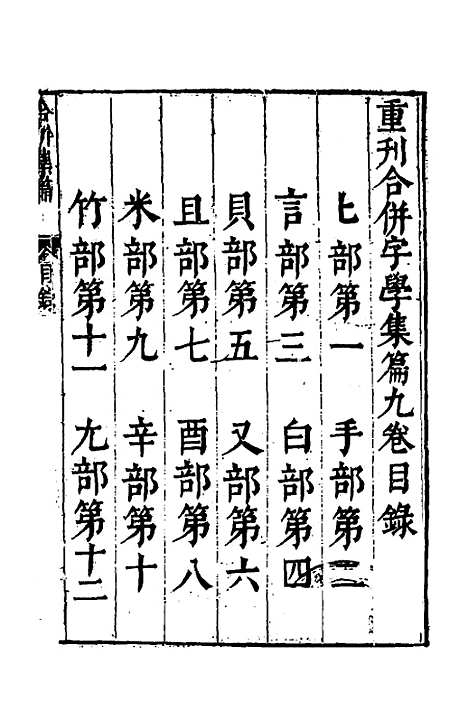 重刊合併字學集篇九卷目錄
匕部第一　手部第二
言部第三　白部第四
貝部第五　又部第六
且部第七　酉部第八
米部第九　辛部第十
竹部第十一　尢部第十二